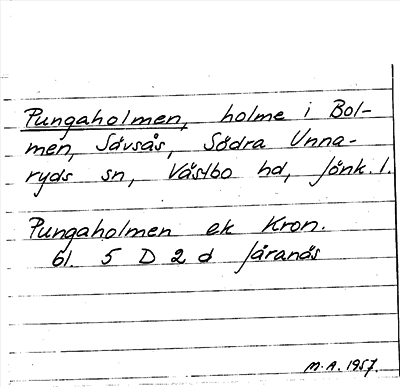 Pungaholmen, holme i Bol-
men, Sävsås, Södra Unna-
ryds sn, Västbo hd, Jönk. l.
Pungaholmen ek Kron.
bl. 5 D 2 d Järanäs
M.A. 1957.